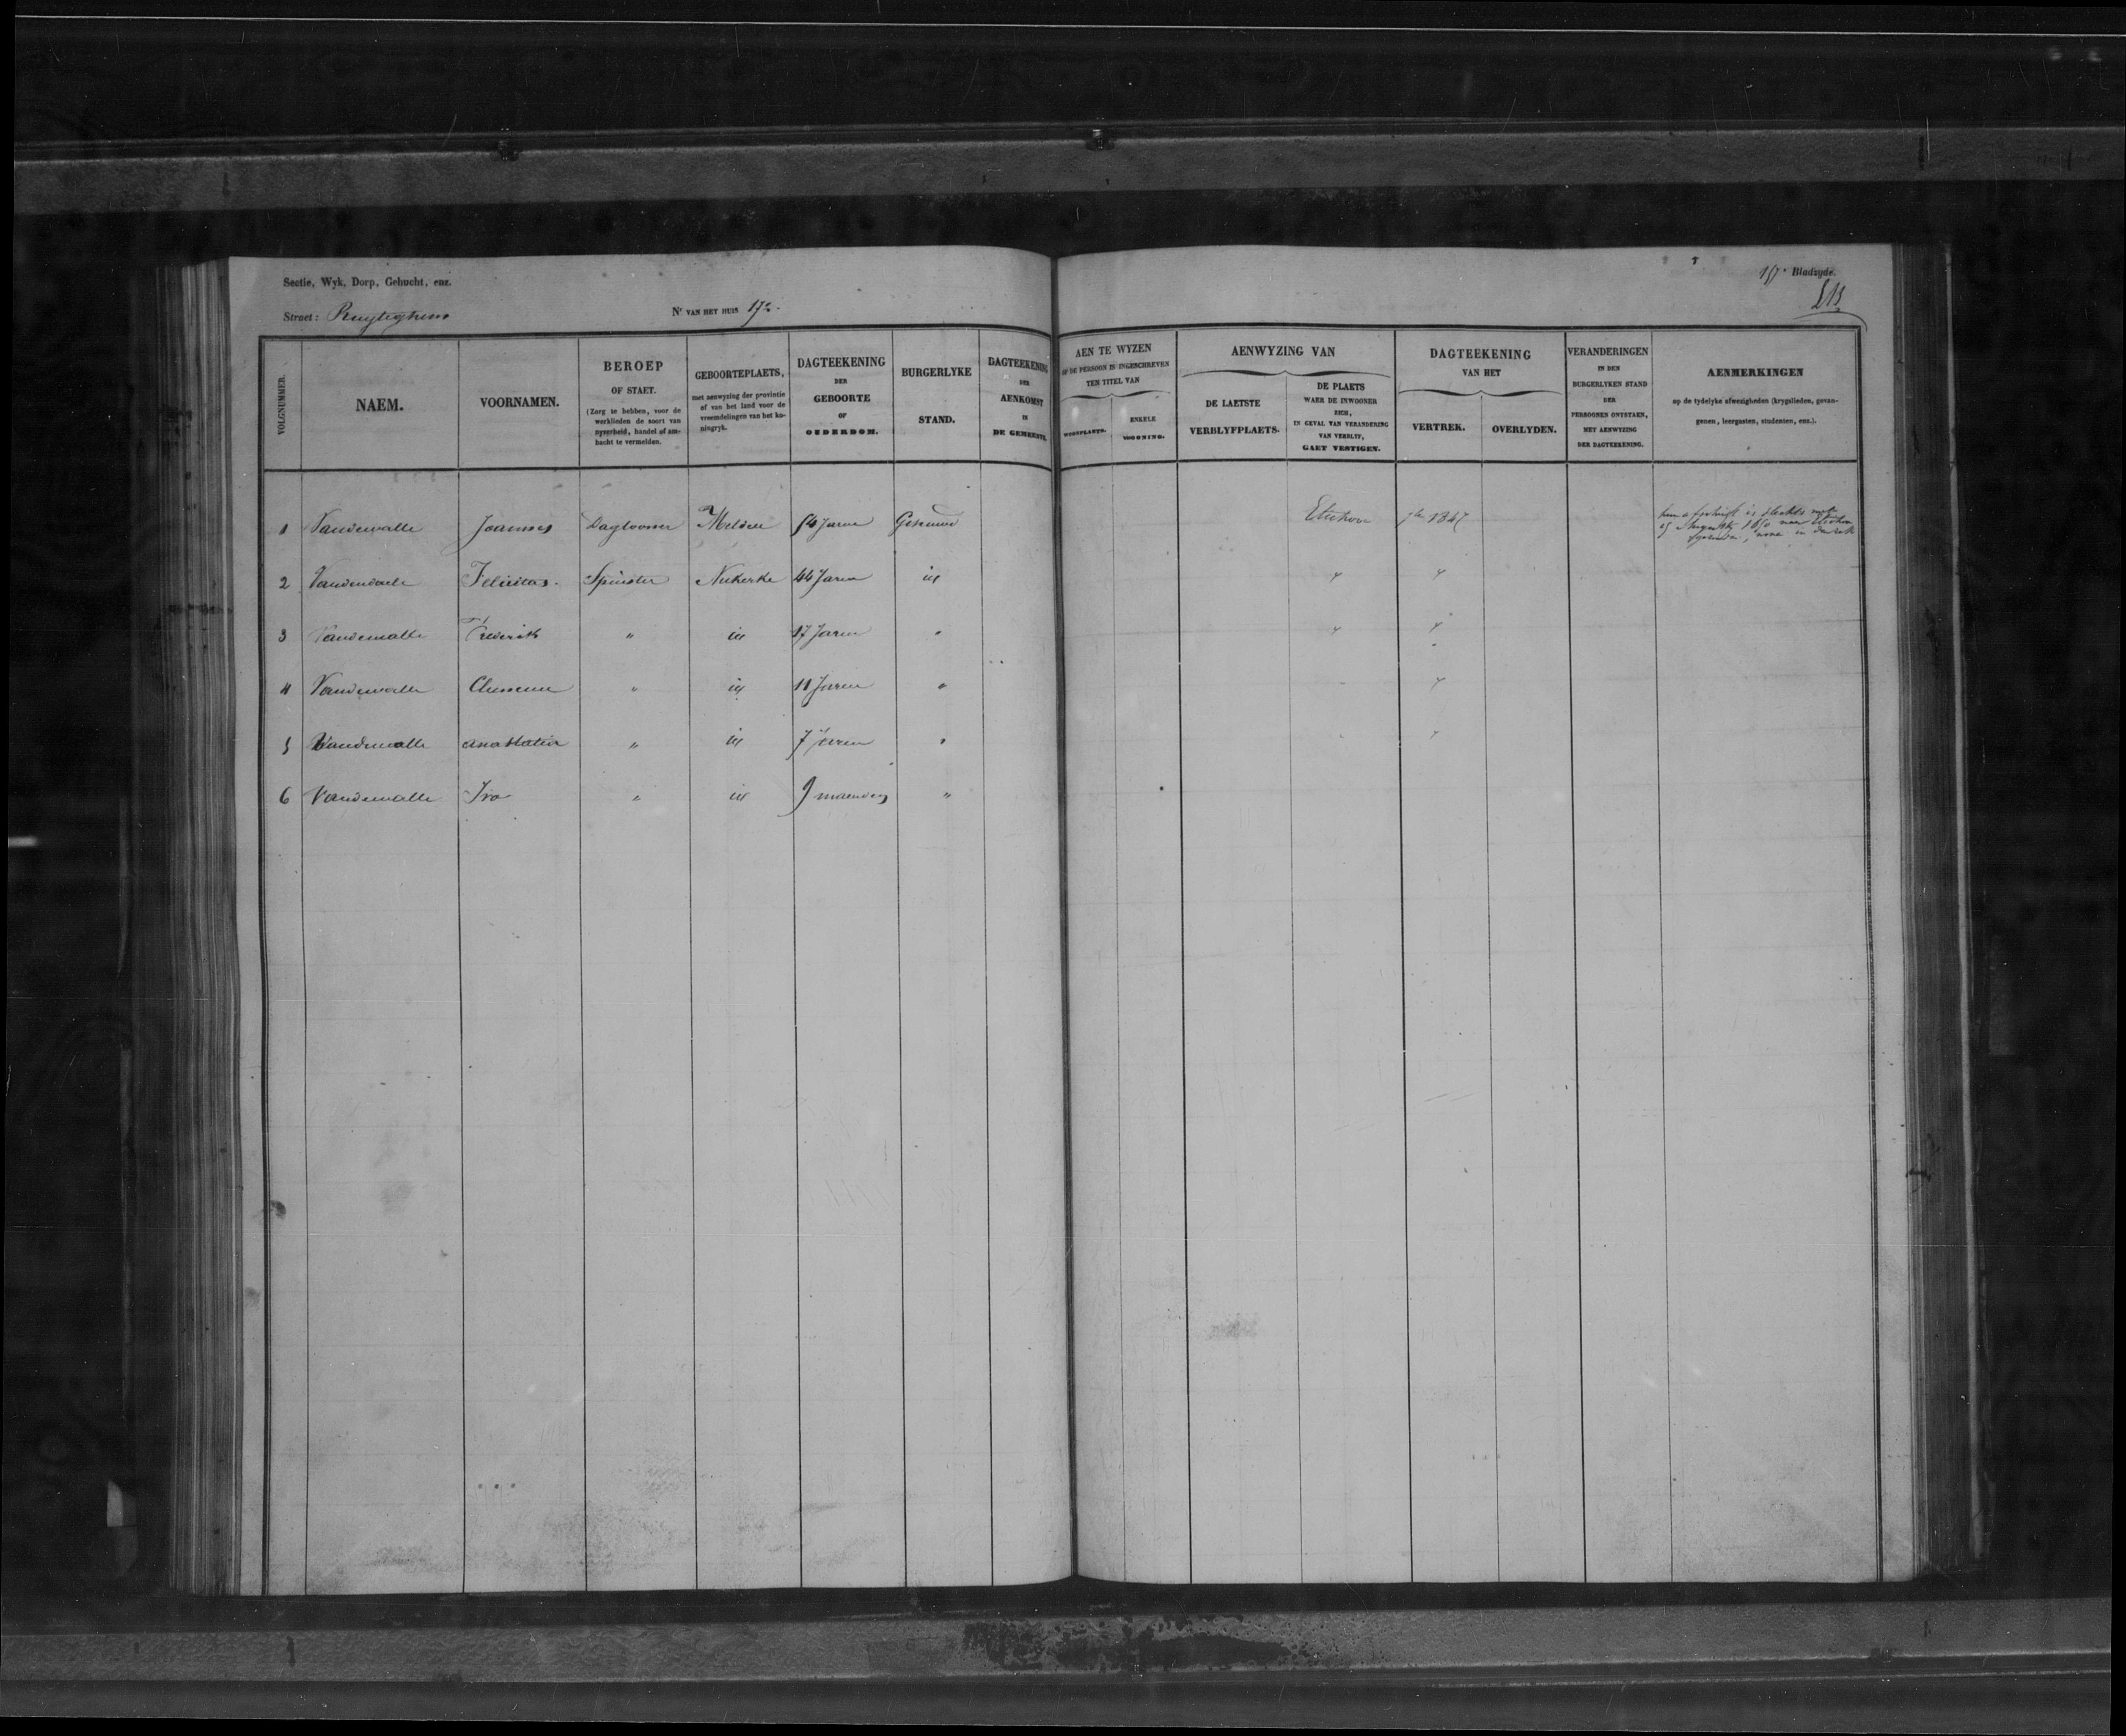 Sectie, Wyk, Dorp, Gehucht, enz.
Straet: Ruyteghem Nr VAN HET HUIS
157e Bladzyde.
VOLGNUMMER.
NAEM.
VOORNAMEN.
BEROEP
OF STAET.
(Zorg te hebben, voor de
werklieden de soort van
nyverheid, handel of am-
bacht te vermelden.
GEBOORTEPLAETS,
met aenwyzing der provintie
of van het land voor de
vreemdelingen van het ko-
ningryk.
DAGTEEKENING
DER
GEBOORTE
OF
OUDERDOM.
BURGERLYKE
STAND.
DAGTEEKENING
DER
AENKOMST
IN
DE GEMEENTE.
AEN TE WYZEN
OF DE PERSOON IS INGESCHREVEN
TEN TITEL VAN
WOONPLAETS.
ENKELE
WOONING.
AENWYZING VAN
DE LAETSTE
VERBLYFPLAETS.
DE PLAETS
WAER DE INWOONER
ZICH,
IN GEVAL VAN VERANDERING
VAN VERBLYF,
GAET VESTIGEN.
DAGTEEKENING
VAN HET
VERTREK.
OVERLYDEN.
VERANDERINGEN
IN DEN
BURGERLYKEN STAND
DER
PERSOONEN ONTSTAEN,
MET AENWYZING
DER DAGTEEKENING.
AENMERKINGEN
op de tydelyke afwezigheden (krygslieden, gevan-
genen, leergasten, studenten, enz.).
1 Vandewalle Joannes Daglooner Melden 54 Jaren Gehuwd Etichove 7ber 1847
2 Vandendaele Felicitas Spinster Nukerke 44 Jaren id
3 Vandewalle Frederik " id 17 Jaren "
4 Vandewalle Clemence " id 11 Jaren "
5 Vandewalle anastatia " id 7 Jaren "
6 Vandewalle Ivo " id 9 maenden "